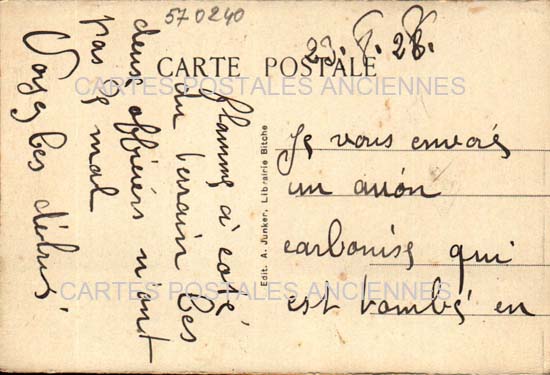 570240
23. 5. 28.
CARTE POSTALE
CARTES POSTALES ANCIENNES
Je vous envois
un avion
carbonisé qui
est tombé en
flamme à coté
du terrain les
deux officiers n'ont
pas de mal
Voyez les débris.
Edit. A. Junker, Librairie Bitche
CARTES POSTALES ANCIENNES